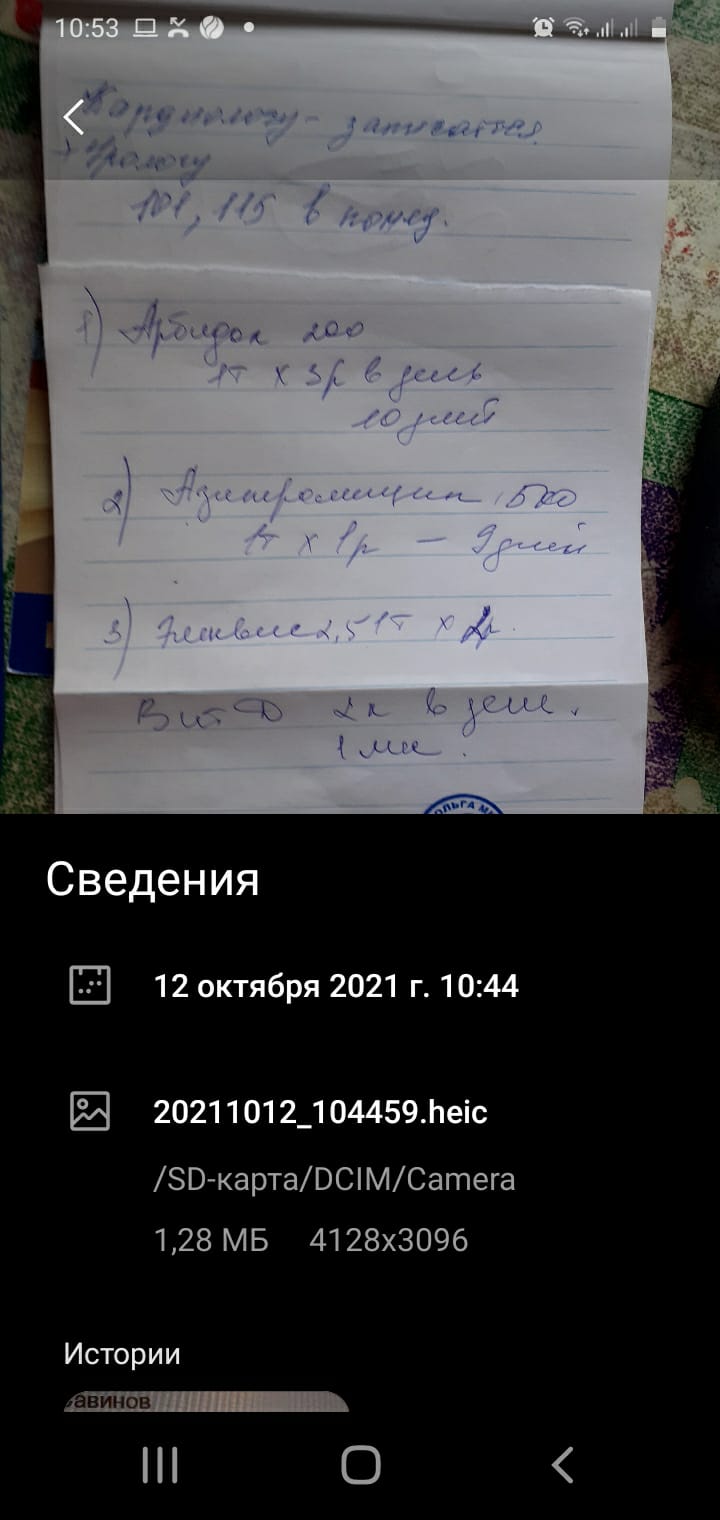 10:53
Кардиологу - записаться
+ Урологу
101, 115 в понед.
1) Арбидол 200
1т х 3р в день
10 дней
2) Азитромицин 500
1т х 1р -
3) Эликвис 2,5 1т х 2р.
Вит D 2к в день.
1 мес.
ОЛЬГА МИ
Сведения
12 октября 2021 г. 10:44
20211012_104459.heic
/SD-карта/DCIM/Camera
1,28 МБ 4128x3096
Истории
авинов